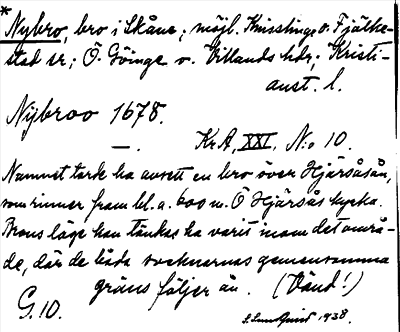 * Nybro, bro i Skåne; möjl. Knisslinge o. Fjälke-
stad sr; Ö. Göinge o. Villands hdr; Kristi-
anst. l.
Nijbroo 1678.
—. KrA, XXI, N:o 10.
Namnet torde ha avsett en bro över Hjärsåsån,
som rinner fram bl. a. 600 m. Ö Hjärsås kyrka.
Brons läge kan tänkas ha varit inom det områ-
de, där de båda socknarnas gemensamma
gräns följer ån. (Vänd!)
G. 10. 1938.